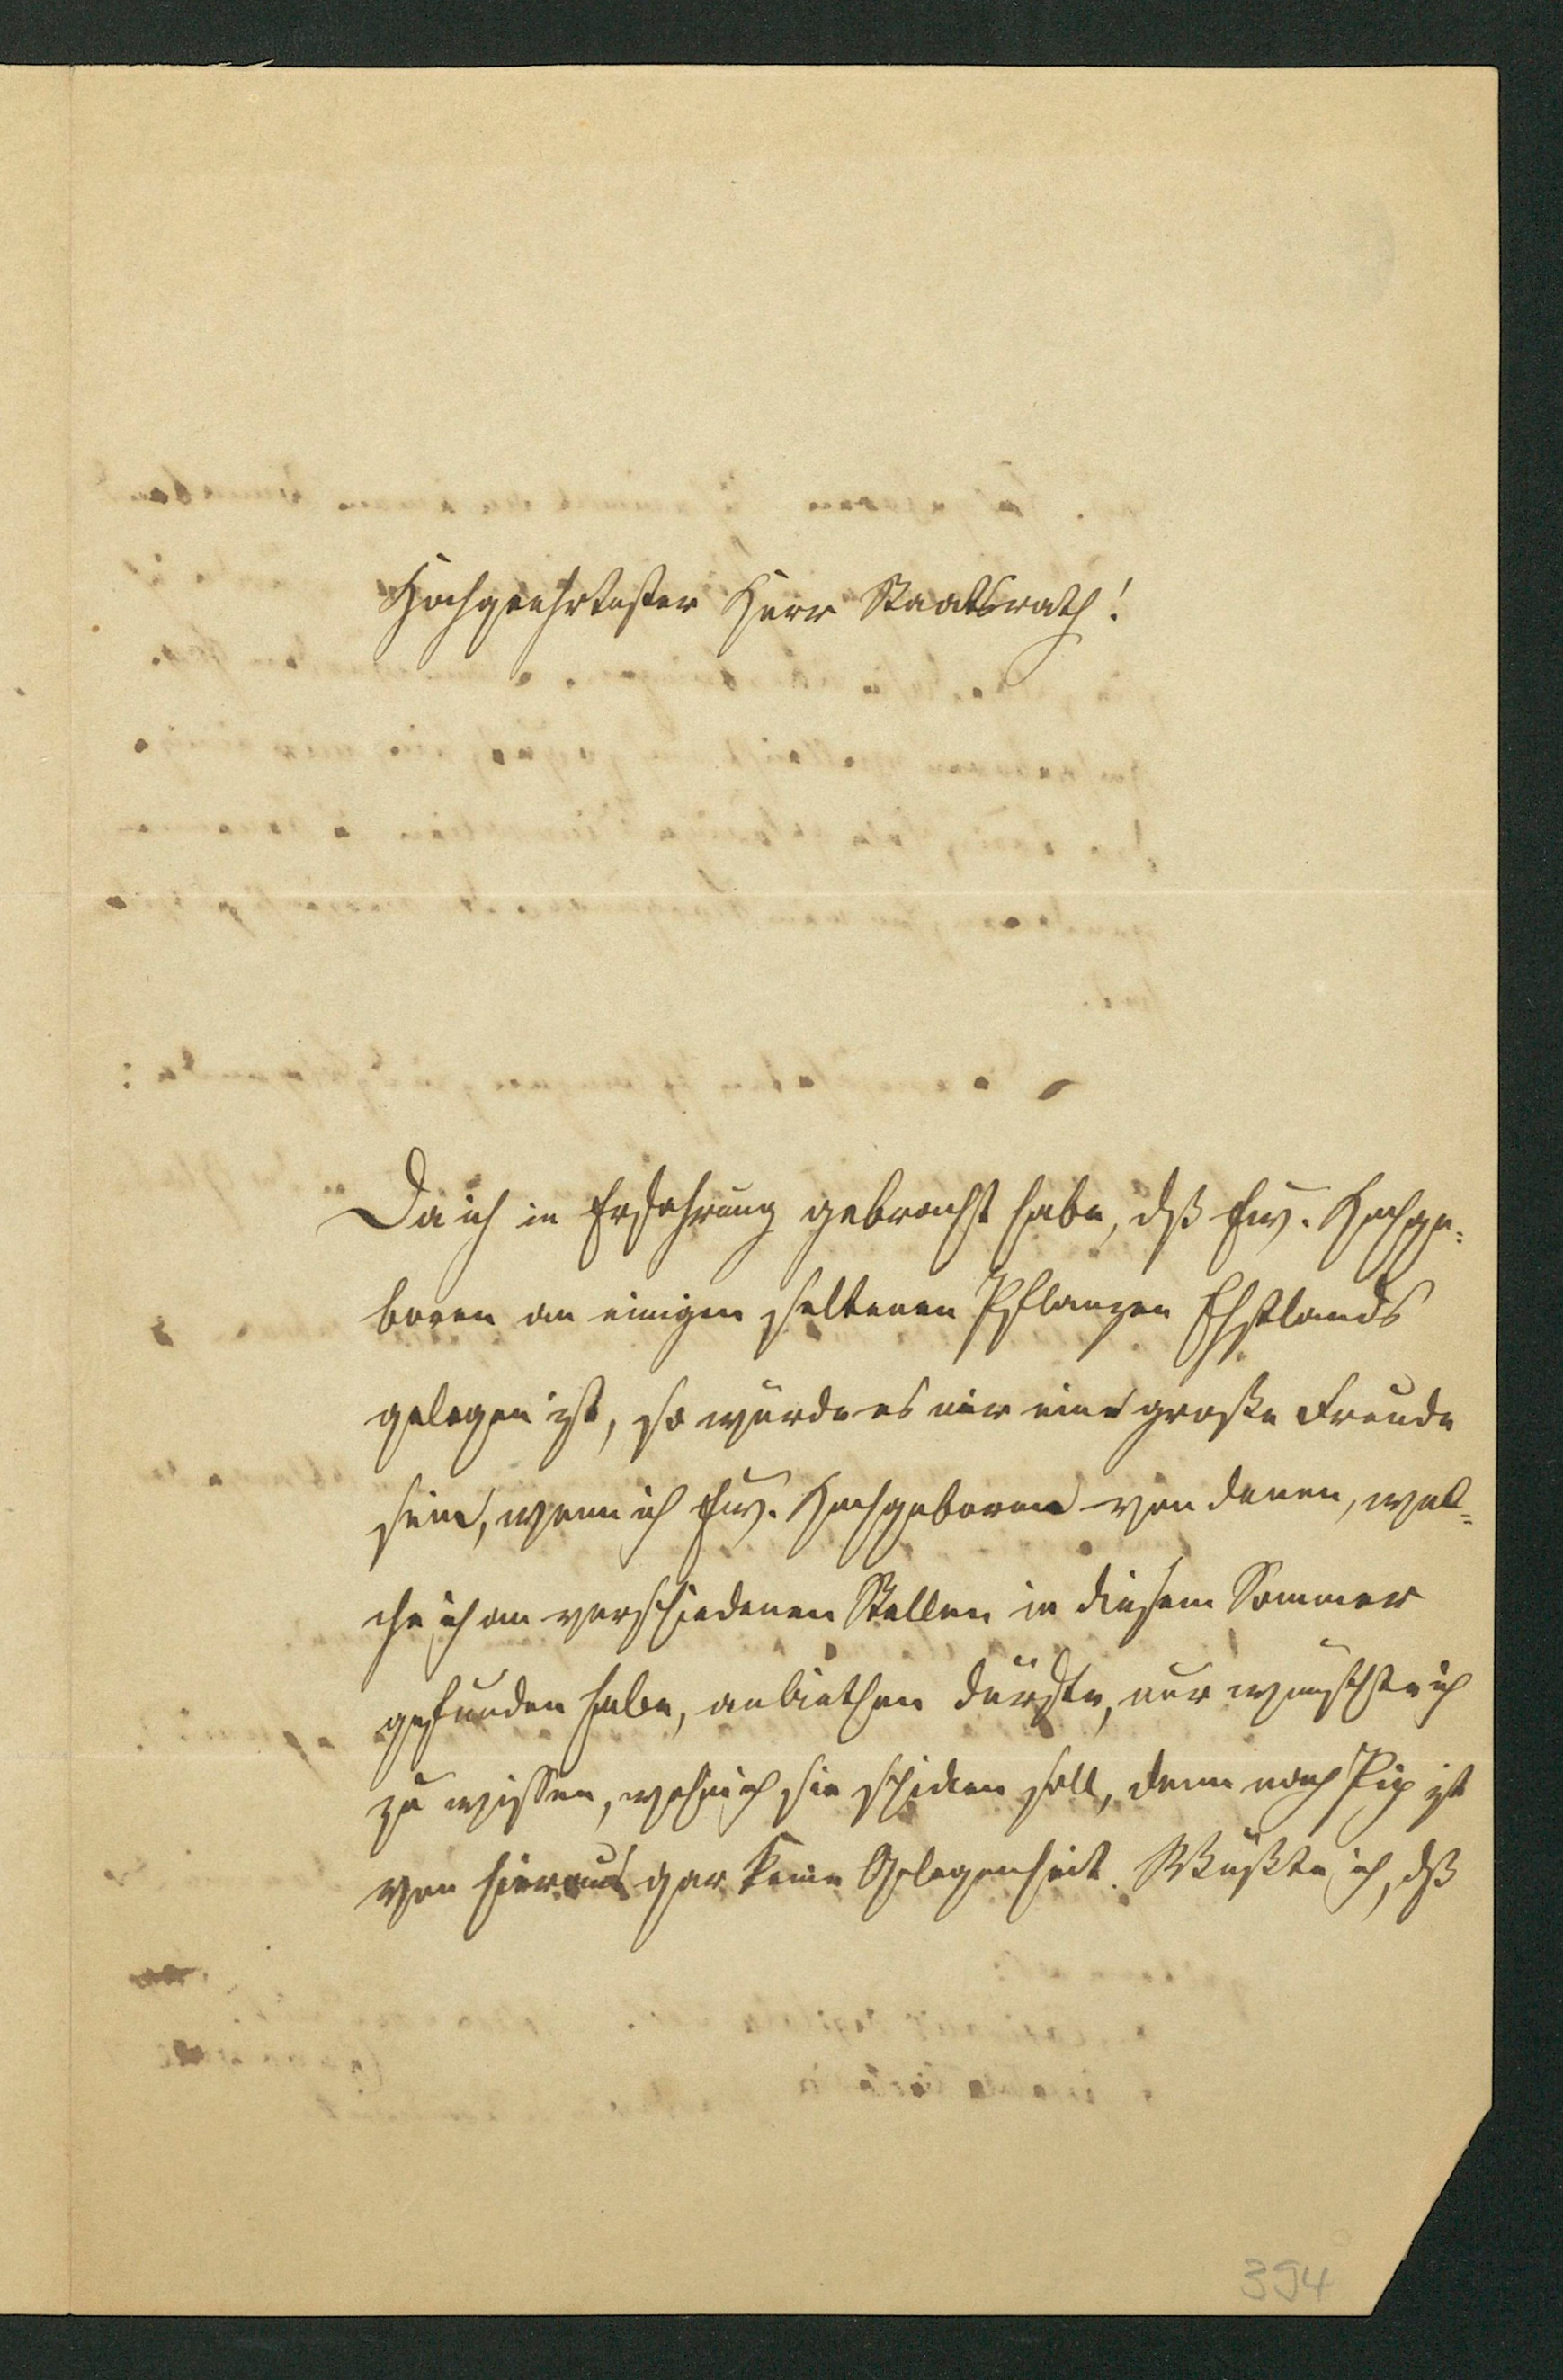 Hochgeehrtester Herr Staatsrath!
Da ich in Erfahrung gebracht habe, dß Ew. Hochge-
boren an einigen seltenen Pflanzen Ehstlands
gelegen ist, so würde es mir eine große Freude
sein, wenn ich Ew. Hochgeboren von denen, wel-
che ich an verschiedenen Stellen in diesem Sommer
gefunden habe, anbiethen dürfte, nur wünschte ich
zu wissen, wohin ich sie schicken soll, denn nach Piep ist
von hieraus gar keine Gelegenheit. Wüßte ich, dß
394